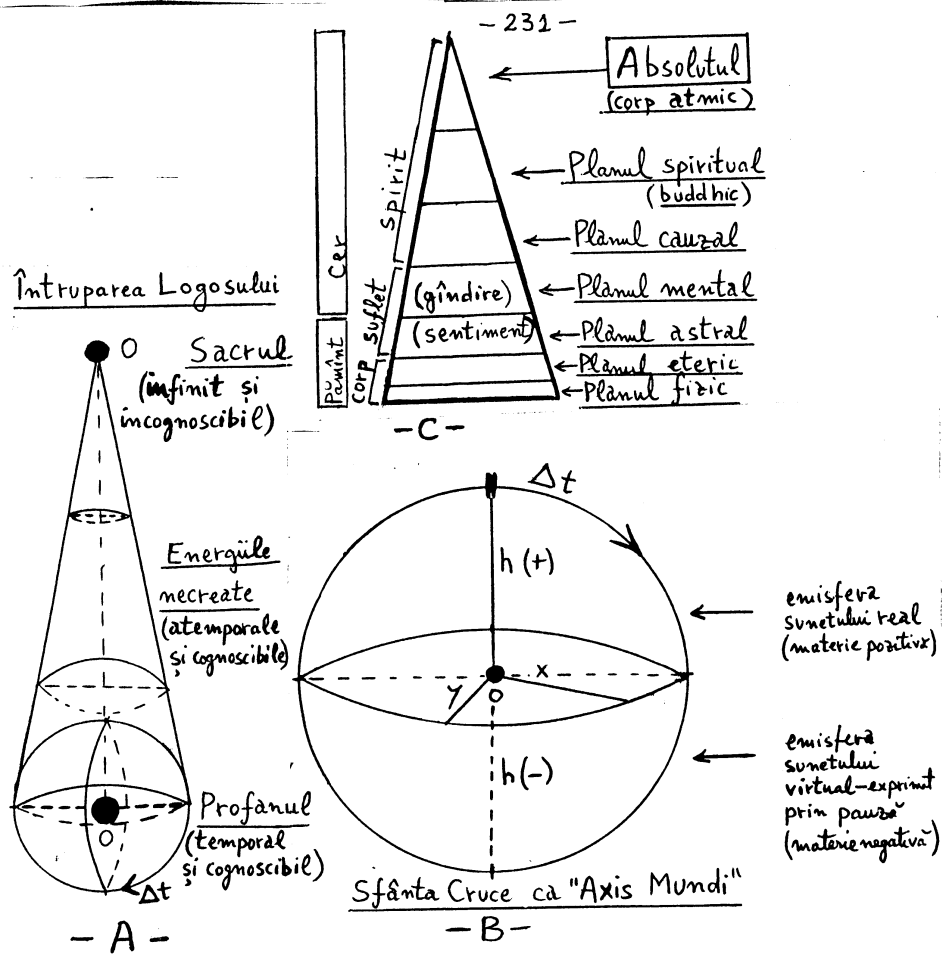 - 231 -
Absolutul
(corp atmic)
Planul spiritual
(buddhic)
Planul cauzal
Planul mental
Planul astral
Planul eteric
Planul fizic
Cer
Pămînt
Spirit
Suflet
Corp
(gîndire)
(sentiment)
- C -
Întruparea Logosului
O
Sacrul
(infinit și
incognoscibil)
Energiile
necreate
(atemporale
și cognoscibile)
Profanul
(temporal
și cognoscibil)
O
Δt
- A -
Δt
h (+)
x
y
O
h(-)
emisfera
sunetului real
(materie pozitivă)
emisfera
sunetului
virtual-exprimat
prin pauză
(materie negativă)
Sfânta Cruce ca "Axis Mundi"
- B -